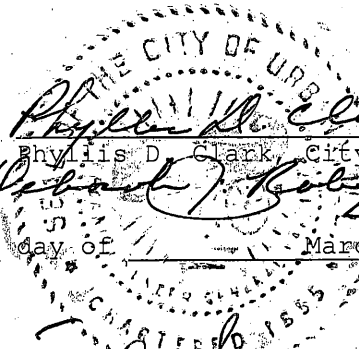 THE CITY OF URB
Phyllis D. Cl
Phyllis D. Clark, City
Deborah J. Rob
day of Marc
CHARTERED 1855